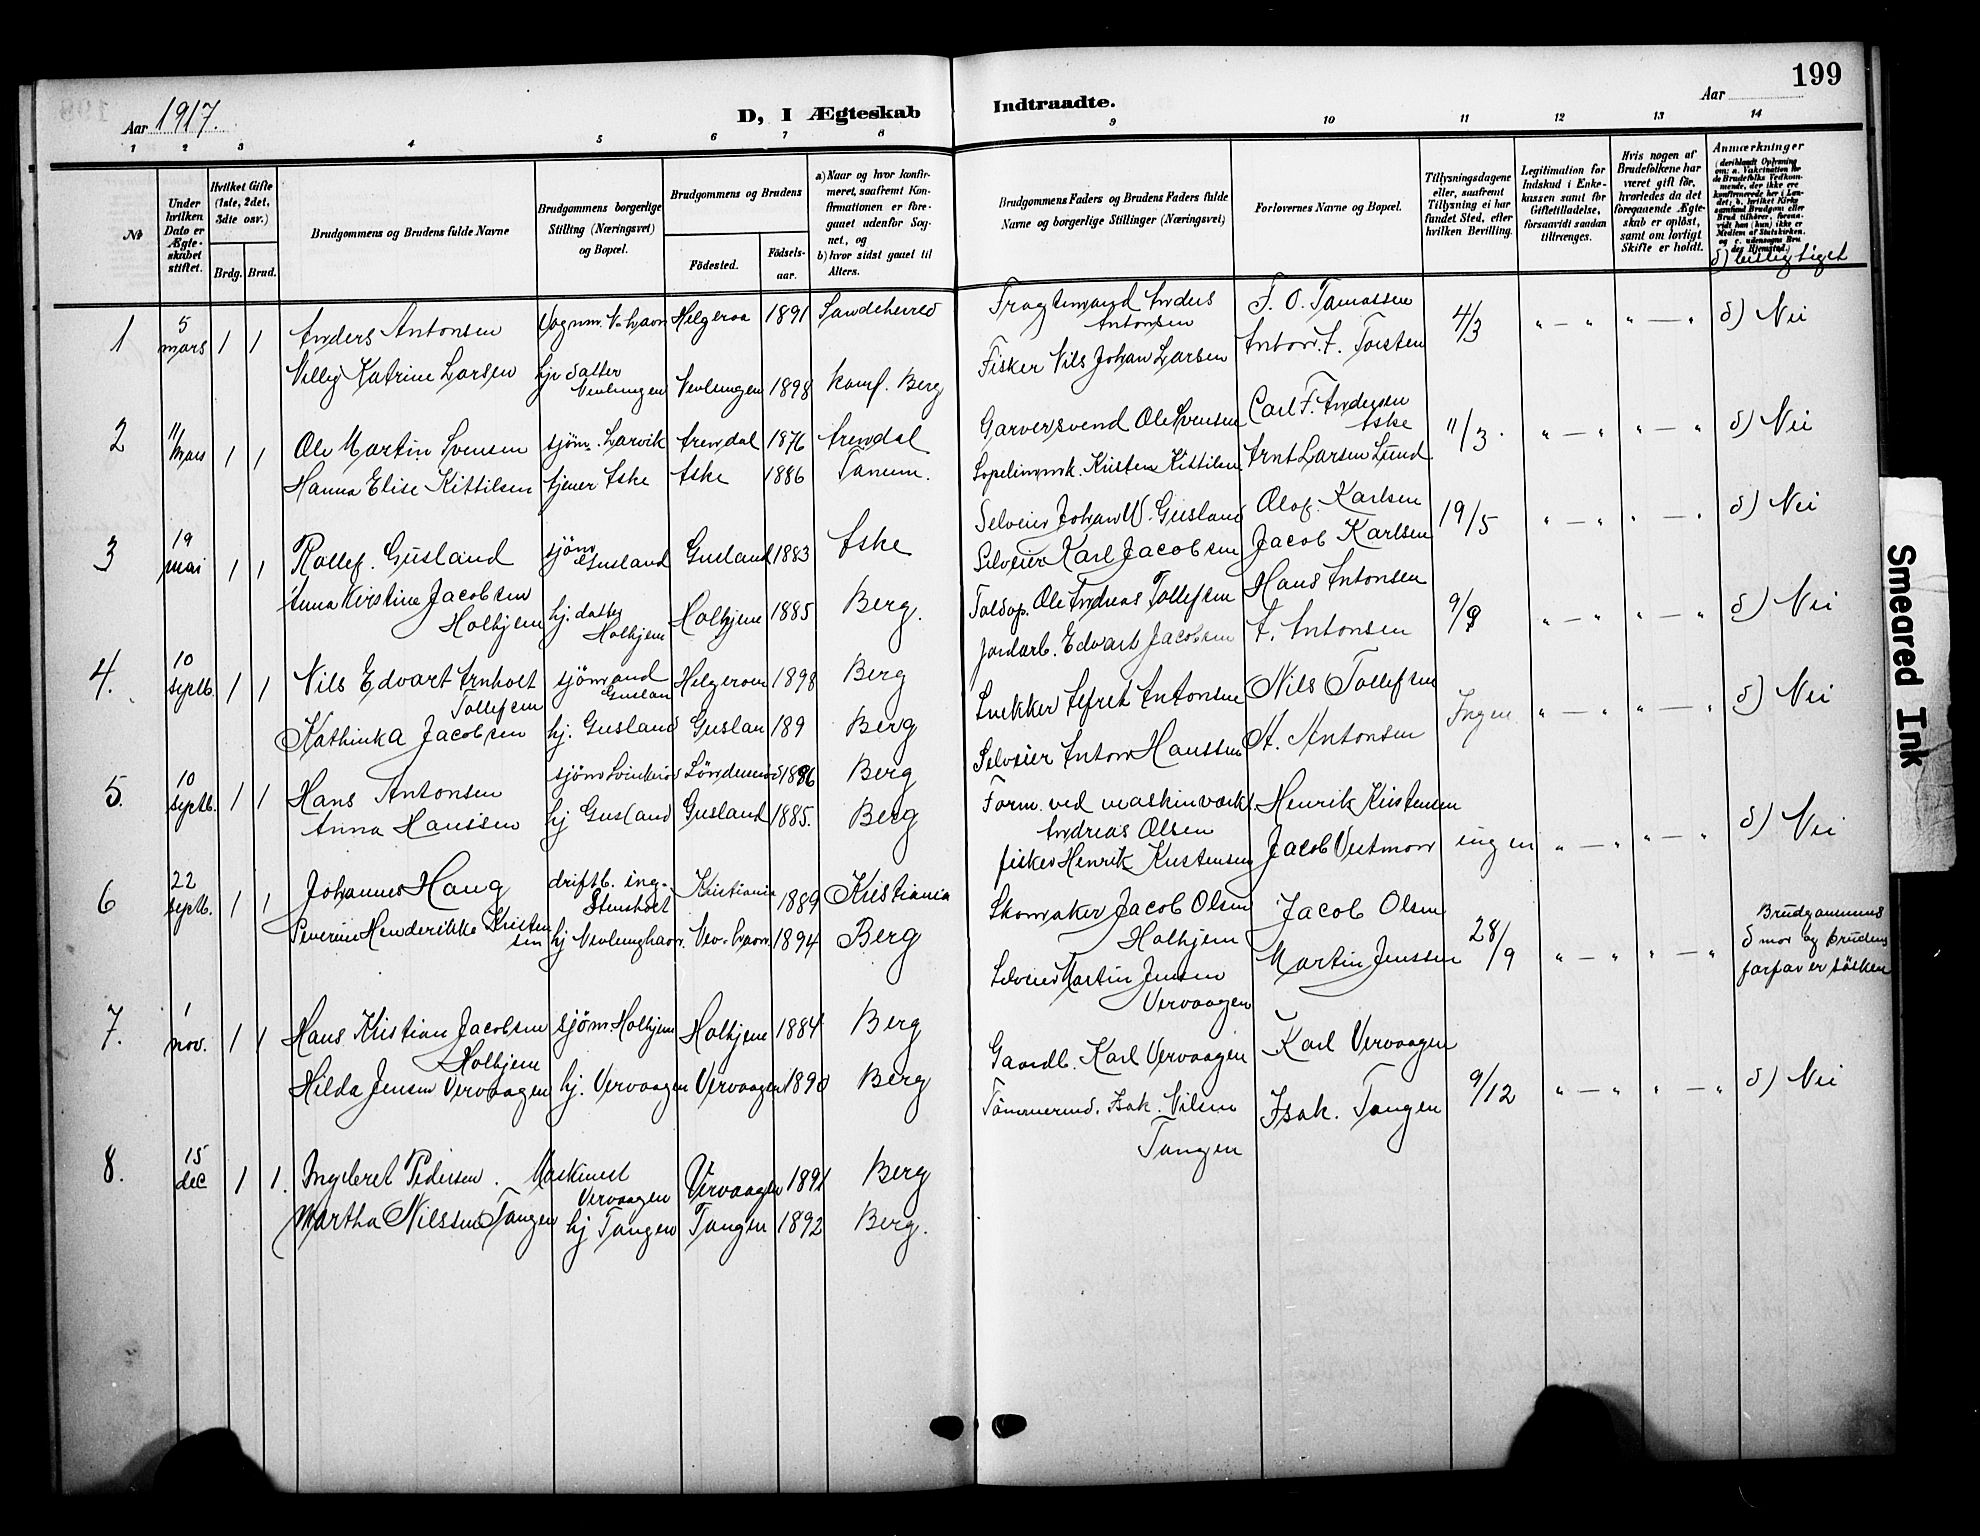 199
Aar 1917.
D, I Ægteskab Indtraadte.
Aar
1 2 3 4 5 6 7 8 9 10 11 12 13 14
№
Under hvilken Dato er Ægteskabet stiftet.
Hvilket Gifte (1ste, 2det, 3die osv.)
Brdg. Brud.
Brudgommens og Brudens fulde Navne
Brudgommens borgerlige Stilling (Næringsvei) og Bopæl.
Brudgommens og Brudens
Födested.
Födselsaar.
a) Naar og hvor konfirmeret, saafremt Konfirmationen er foregaaet udenfor Sognet, og
b) hvor sidst gaaet til Alters.
Brudgommens Faders og Brudens Faders fulde Navne og borgerlige Stillinger (Næringsvei)
Forlovernes Navne og Bopæl.
Tillysningsdagene eller, saafremt Tillysning ei har fundet Sted, efter hvilken Bevilling.
Legitimation for Indskud i Enkekassen samt for Giftetilladelse, forsaavidt saadan tiltrænges.
Hvis nogen af Brudefolkene har været gift för, hvorledes da det foregaaende Ægteskab er oplöst, samt om lovligt Skifte er holdt.
Anmærkninger
1 5 mars 1 1 Anders Antonsen Vognm. N. havn Helgeroa 1891 Sandeherred
Fragtemand Anders Antonsen
4/3 " — " " — " d) Nei
Nelly Katrine Larsen hj. datter Nevlungen Nevlungen 1898 konf. Berg
Fisker Nils Johan Larsen
2 11 mars 1 1 Ole Martin Svensen sjöm. Larvik Arendal 1876 Arendal
Garversvend Ole Svensen Carl F. Andersen Aske 11/3 " — " " — " d) Nei
Hanna Elise Kittilsen tjener Aske Aske 1886 Tanum.
Kristen Kittilsen Arnt Larsen Lund
3 19 mai 1 1 Rollef. Gusland sjöm Gusland Gusland 1883 Aske
Selveier Johan W. Gusland Olof. Karlsen 19/5 " — " " — " d) Nei
Anna Kirstine Jacobsen Holhjem hj. datter Holhjem Holhjem 1885 Berg.
Selveier Karl Jacobsen Jacob Karlsen
4. 10 septb. 1 1 Nils Edvart Arnholt Tollefsen sjömand Guslan Helgeroen 1898 Berg
Ole Andreas Tollefsen Hans Antonsen 9/9 " — " " — " d) Nei
Kathinka Jacobsen hj. Gusland Guslan 189 Berg
Jordarb. Edvart Jacobsen A. Antonsen
5. 10 septb. 1 1 Hans Antonsen sjöm 1886 Berg
Snekker Antonsen Nils Tollefsen Ingen " — " " — " d) Nei
Anna Hanssen hj Gusland Gusland 1885. Berg
Selveier Anton Hanssen A. Antonsen
6 22 septb. 1 1 Johannes Haug driftb. ing. Stensholt Kristiania 1889 Kristiania
Form. ved maskinværkst. Andreas Olsen Henrik Kristensen ingen " — " " — " d) Nei
Severine Henderikke Kristensen hj Nevlunghavn. Nev-havn 1894 Berg
fisker Henrik Kristensen Jacob
7. 1 nov. 1 1 Hans Kristian Jacobsen Holhjem sjöm Holhjem Holhjem 1884 Berg
Skomaker Jacob Olsen Holhjem Jacob Olsen 28/9 " — " " — "
Brudgommens mor og brudens farfar er søsken
Hilda Jensen Vervaagen hj. Vervaagen Vervaagen 1890 Berg
Selveier Martin Jensen Vervaagen Martin Jenssen
8. 15 dec 1 1. Ingebret Pedersen. Maskinist Vervaagen Vervaagen 1891 Berg
Gaardb. Karl Vervaagen Karl Vervaagen 9/12 " — " " — " d) Nei
Martha Nilssen Tangen hj Tangen Tangen 1892 Berg.
Tömmermd. Isak. Nilsen Tangen Isak. Tangen
Smeared Ink